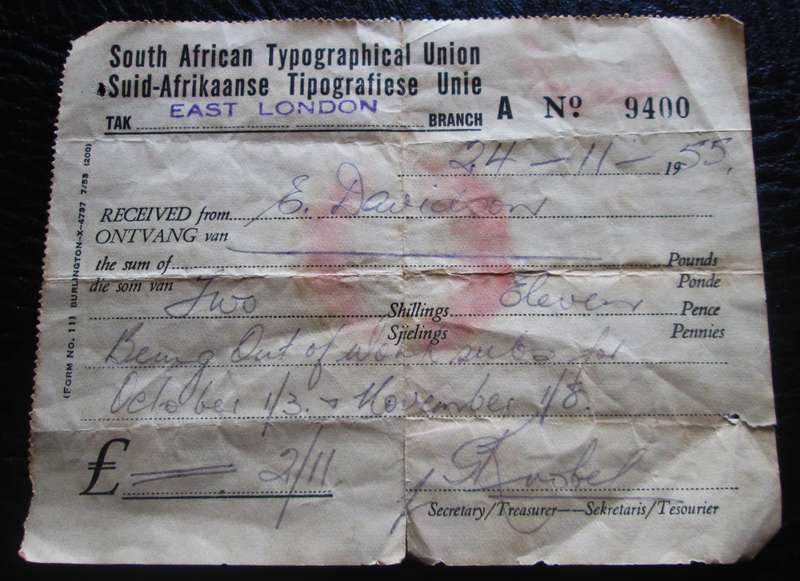 South African Typographical Union
Suid-Afrikaanse Tipografiese Unie
TAK EAST LONDON BRANCH A Nº 9400
24 - 11 - 1955.
RECEIVED from E. Davidson
ONTVANG van
the sum of Pounds
die som van Ponde
Two Shillings Eleven Pence
Sjielings Pennies
Being Out of Work subs for
October 1/3. & November 1/8.
£ 2/11.
Secretary/Treasurer——Sekretaris/Tesourier
(FORM No. 11) BURLINGTON—X—4737 7/53 (200)